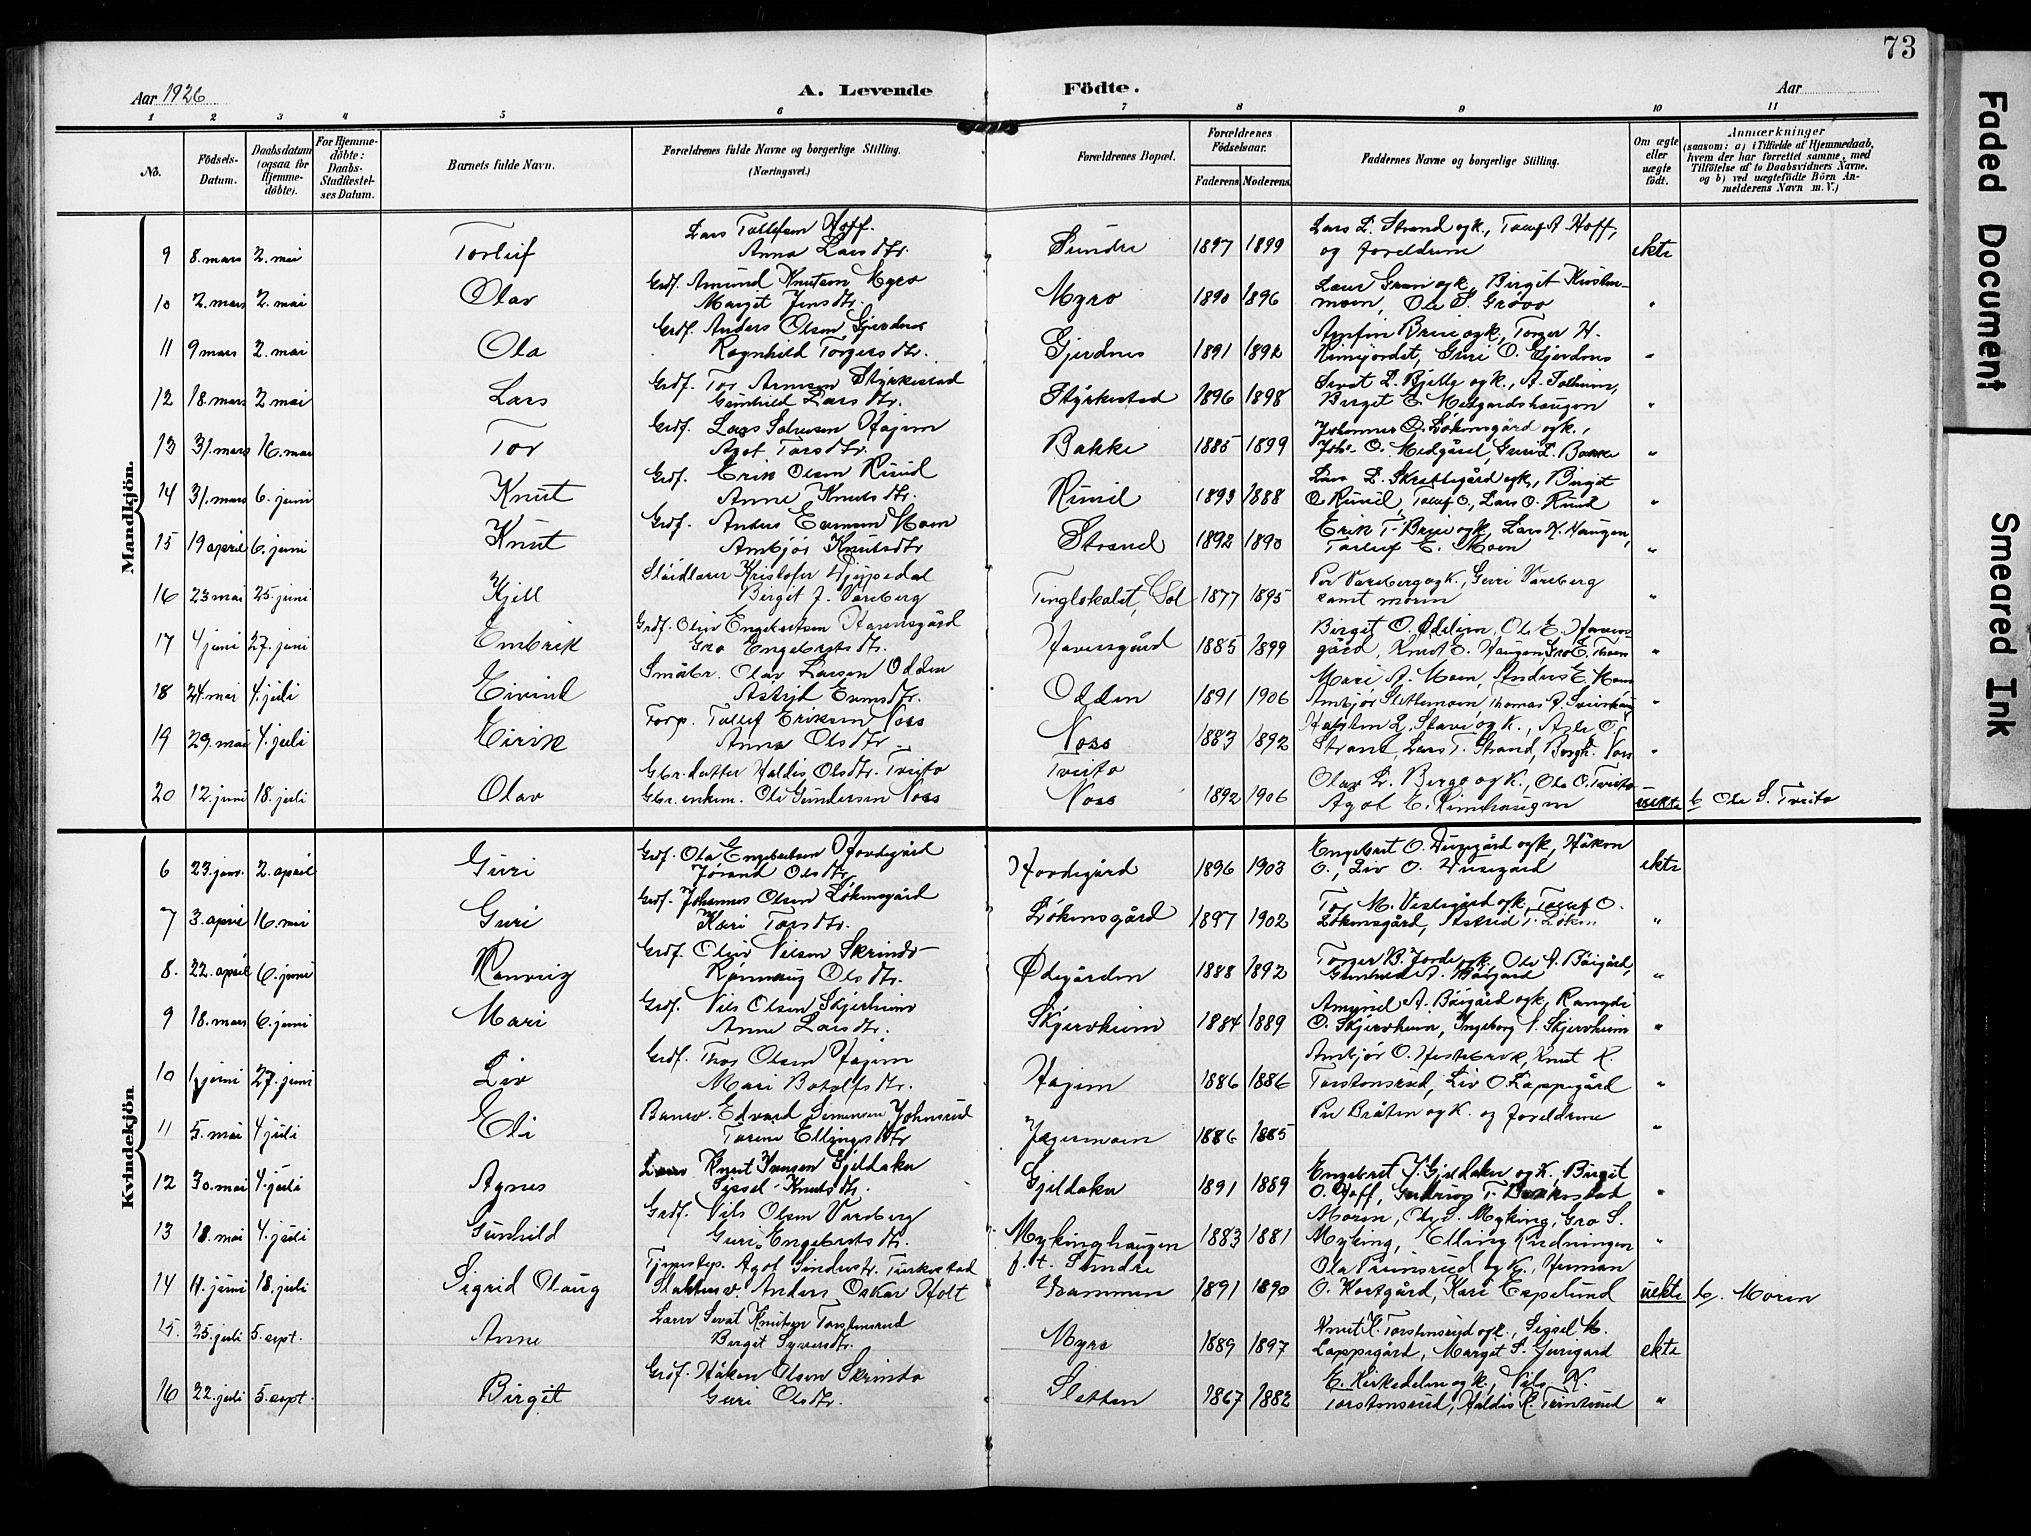 73
Aar 1926
A. Levende Födte.
Aar
1 2 3 4 5 6 7 8 9 10 11
No.
Födsels-Datum.
Daabsdatum (ogsaa for Hjemme-döbte).
For Hjemme-döbte: Daabs-Stadfæstel-ses Datum.
Barnets fulde Navn.
Forældrenes fulde Navne og borgerlige Stilling. (Næringsvei.)
Forældrenes Bopæl.
Forældrenes Födselsaar.
Faderens Moderens
Faddernes Navne og borgerlige Stilling.
Om ægte eller uægte födt.
Anmærkninger (saasom: a) i Tilfælde af Hjemmedaab, hvem der har forrettet samme, med Tilföielse af to Daabsvidners Navne. og b) ved uægtefödte Börn Anmelderens Navn m. V.)
Mandkjön.
9 8. mars 2. mai Torleif Lars Tollefsen Hoff. Anna Larsdtr. Sundre 1897 1899 Lars L. Strand og k., Tollef A. Hoff, og foreldrene ekte
10 2. mars 2. mai Olav Grdf. Amund Knutsen Myro Margit Jensdtr. Myro 1890 1896 Birgit Kirstenmoen, Ole S. Grøvo "
11 9 mars 2. mai Ola Grdf. Anders Olsen Gjerdnes Ragnhild Torgersdtr. Gjerdnes 1891 1892 Torger H. Guri O. Gjerdnes "
12 18. mars 2 mai Lars Grdf. Tor Arnesen Styrkestad Gunhild Larsdtr. Styrkestad 1896 1898 Sevat L. Bjella og k., A. Solheim, Birgit E. Medgardshaugen "
13 31. mars 16. mai Tor Grdf. Lars Hagen Agot Torsdtr. Bakke 1885 1899 Johannes O. Løkensgård og k., Joh. O. Medgård, Guri L. Bakke "
14 31. mars 6. juni Knut Grdf. Erik Olsen Ruud Anne Knutsdtr. Ruud 1893 1888 Lars L. Skrattegård og k., Birgit O. Ruud, Tollef O., Lars O. Ruud "
15 19 april 6. juni Knut Grdf. Anders Evensen Moen Ambjør Knutsdtr. Strand 1892 1890 Erik T. Breie og k., Lars K. Haugen, Tollef E. Moen "
16 23 mai 25. juni Kjell Sløidlærer Kristofer Djupedal Birgit J. Vareberg Tinglokalet, Gol 1877 1895 Per Vareberg og k., Guri Vareberg samt moren "
17 4 juni 27. juni Embrik Grdf. Oliv Engebretsen Havensgård Gro Engebretsdtr. Havensgård 1885 1899 Birgit O. Ødelien, Ole E. Havensgård, Knut E. Haugen, Gro E. Moen "
18 24. mai 4. juli Eivind Småbr. Olav Larsen Odden Astrid Evensdtr. Odden 1891 1906 Mari A. Moen, Anders E. Moen Ambjør Slettemoen, Thomas A. "
19 29. mai 4. juli Eirik Forp. Tollef Eriksen Noss Anna Olsdtr. Noss 1883 1892 Halsten L. Stave og k., Asle O. Strand, Lars T. Strand, Borgh. Noss "
20 12. juni 18. juli Olav Gbr.datter Haldis Olsdtr. Tveito Gbr.enkem. Ole Gundersen Noss Tveito Noss 1892 1906 Olav L. Bergo og k., Ole O. Tveito Agot E. Rimehaugen uekte b Ole S. Tveito
Kvindekjön
6 23. jan. 2. april Guri Grdf. Ola Engebretsen Hovdegård Jørand Olsdtr. Hovdegård 1896 1903 Engebret O. Tuvegård og k., Håkon O., Liv O. Tuvegård ekte
7 3. april 16. mai Guri Grdf. Johannes Olsen Løkensgård Kari Torsdtr. Løkensgård 1897 1902 Tor M. Vestegård og k., Tollef O. Løkensgård, Astrid T. Løken "
8. 22. april 6. juni Ranveig Grdf. Oliv Nilsen Skrindo Rønnaug Olsdtr. Ødegården 1888 1892 Torger B. Jorde og k., Ole A. Bøigård, Gunhild A. Bøigård "
9 18. mars 6. juni Mari Grdf. Nils Olsen Skjerheim Anne Larsdtr. Skjervheim 1884 1889 Amund A. Bøigård og k., Rangdi O. Skjervheim, Ingeborg N. Skjervheim "
10 1 juni 27. juni Liv Grdf. Thor Olsen Hagen Mari Botolfsdtr. Hagen 1886 1886 Ambjør O. Hestebrek, Knut K. Torstensrud, Liv O. Lappegård "
11 5. mai 4 juli Eli Banev. Edvard Simensen Johnsrud Torine Ellingsdtr. Jegermoen 1886 1885 Per Bråten og k. og foreldrene "
12 30. mai 4. juli Agnes Lærer Knut Iversen Gjeldaker Sissel Knutsdtr. Gjeldaker 1891 1889 Engebret J. Gjeldaker og k., Birgit O. Hoff, Gudrun T. "
13 18. mai 4. juli Gunhild Grdf. Nils Olsen Vareberg Guri Engebretsdtr. Mykinghaugen 1883 1881 Moren, Ole S. Myking, Gro S. Myking, Elling Rudningen "
14 11. juni 18. juli Sigrid Olaug Tjenestep. Agot Sindresdtr. Turkestad Slakterv. Anders Oskar Holt f. t. Sundre Drammen 1891 1890 Ola Trintrud og k., Herman O. Kortgård, Kari Espelund uekte b. Moren
15. 25. juli 5. sept. Anne Lærer Sevat Knutsen Torstensrud Birgit Syversdtr. Myro 1889 1897 Knut K. Torstensrud og k., Sissel K. Lappegård, Margit S. Guregard ekte
16 22. juli 5. sept. Birgit Grdf. Håkon Olsen Skrindo Guri Olsdtr. Sletten 1867 1882 E. Kirkedelen og k., Nils K. Torstensrud, Haldis K. Trintrud "
Faded Document
Smeared Ink